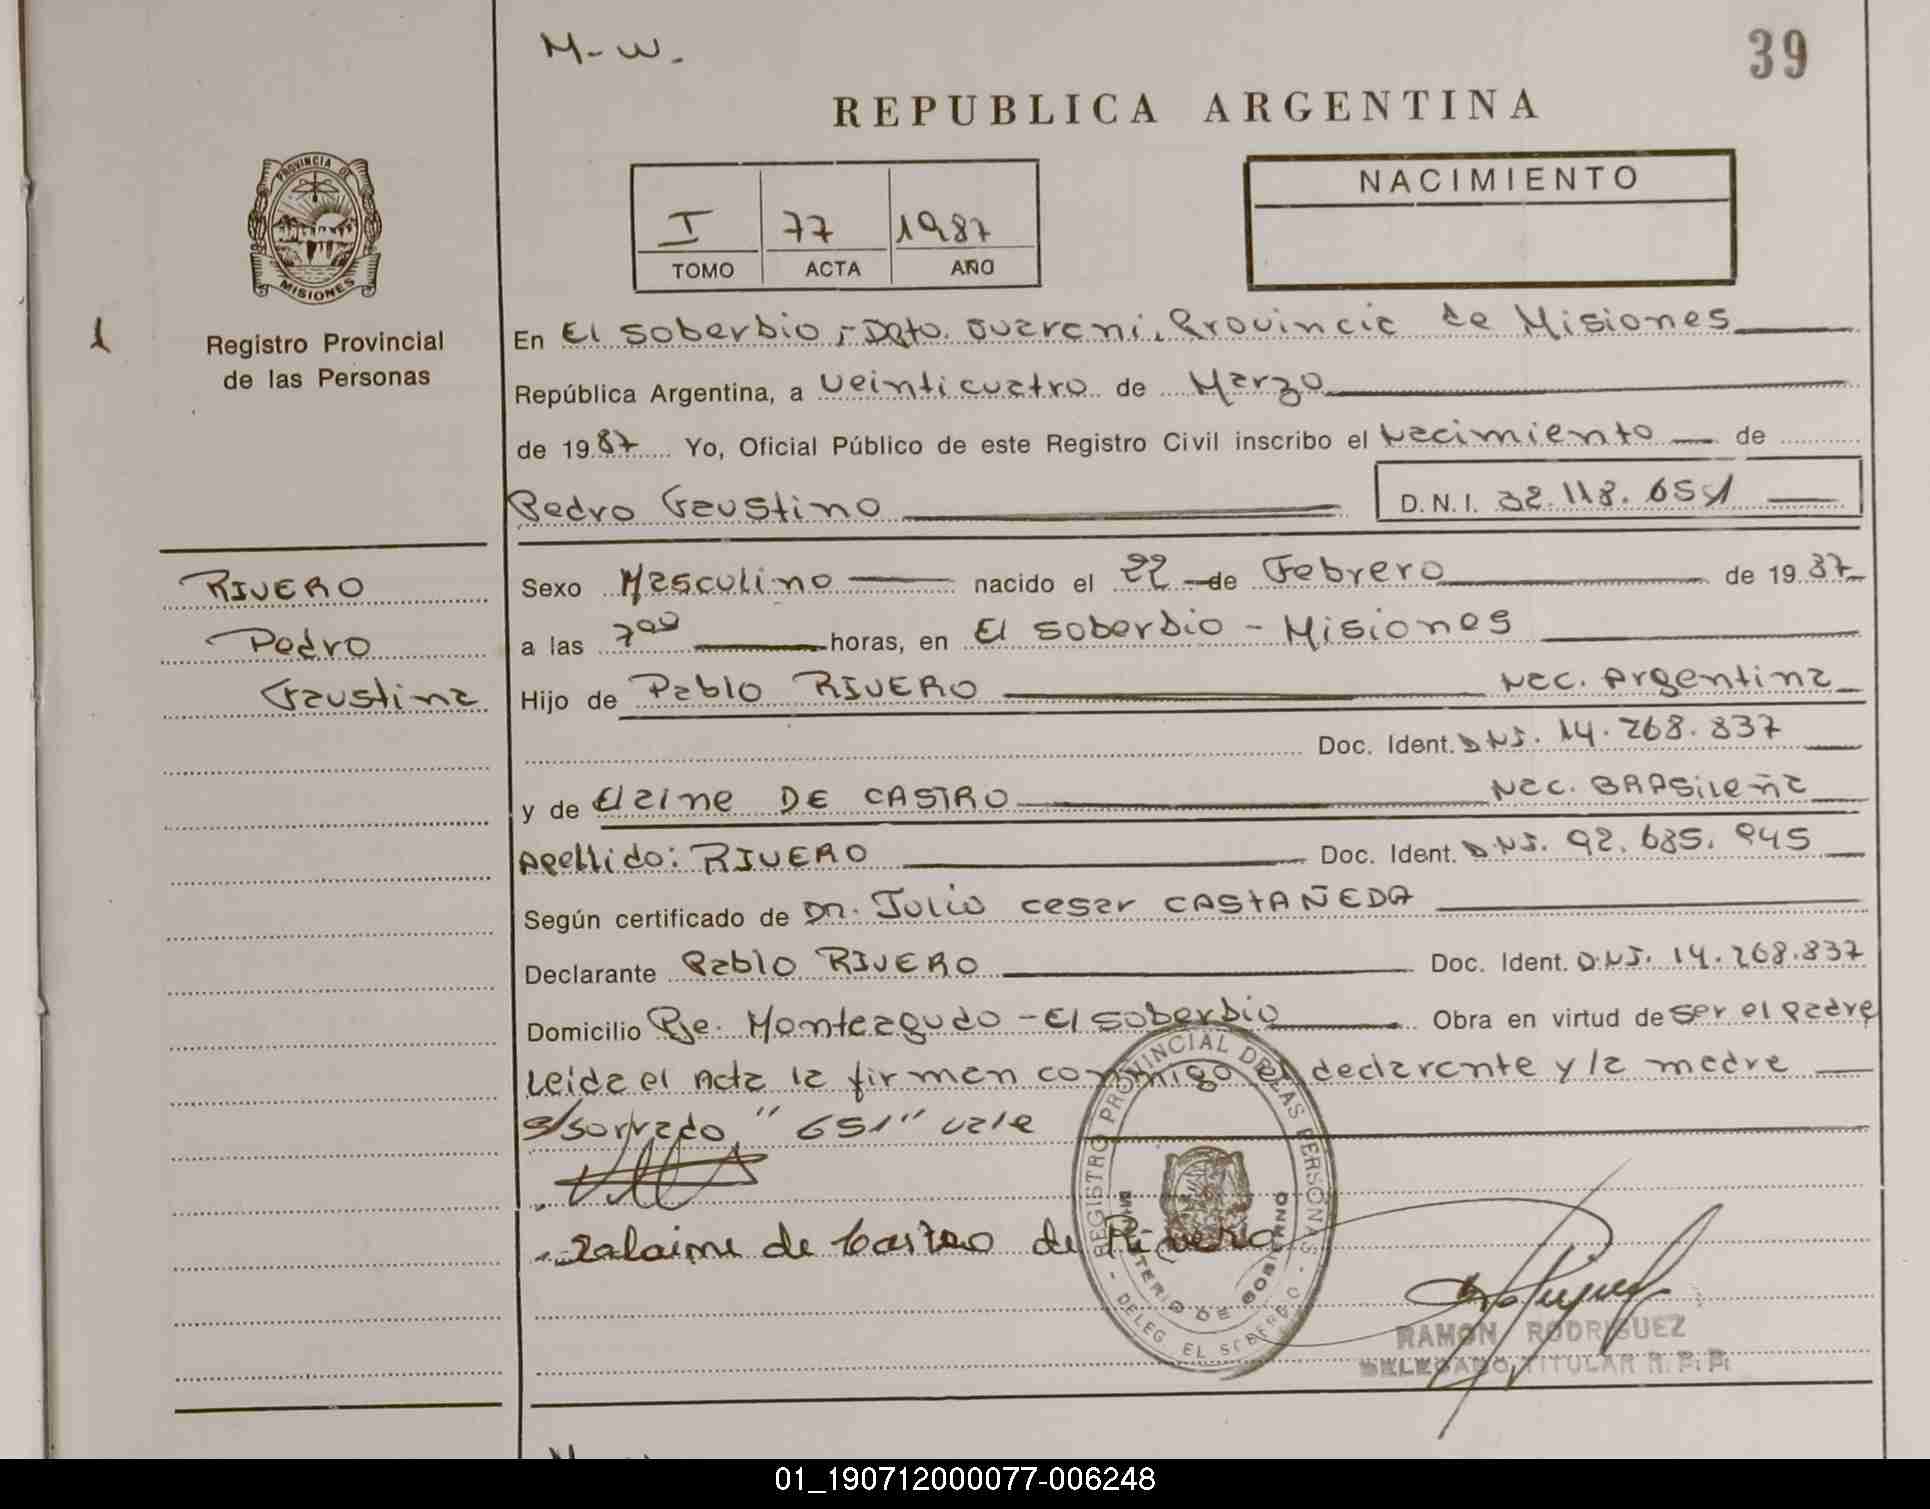 M-W.
39
REPUBLICA ARGENTINA
PROVINCIA DE
MISIONES
I 77 1987
TOMO ACTA AÑO
NACIMIENTO
Registro Provincial
de las Personas
1
En El Soberbio, Dpto. Guarani, Provincia de Misiones
República Argentina, a veinticuatro de Marzo
de 1987 Yo, Oficial Público de este Registro Civil inscribo el Nacimiento de
Pedro Faustino D.N.I. 32.118.651
RIVERO
Pedro
Faustina
Sexo Masculino nacido el 22 de Febrero de 1987
a las 7 00 horas, en El Soberbio - Misiones
Hijo de Pablo RIVERO Nac. Argentina
Doc. Ident. DNI. 14.268.837
y de Elaine DE CASTRO Nac. BRASileña
Apellido: RIVERO Doc. Ident. DNI. 92.685.945
Según certificado de Dr. Julio Cesar CASTAÑEDA
Declarante Pablo RIVERO Doc. Ident. DNI. 14.268.837
Domicilio Pje. Monteagudo - El Soberbio Obra en virtud de ser el padre
Leida el Acta la firman conmigo el declarante y la madre
s/borrado "651" vale
de Castro de Rivero
REGISTRO PROVINCIAL DE LAS PERSONAS
MINISTERIO DE GOBIERNO
DELEG. EL SOBERBIO
RAMON RODRIGUEZ
DELEGADO TITULAR R. P. P.
01_190712000077-006248